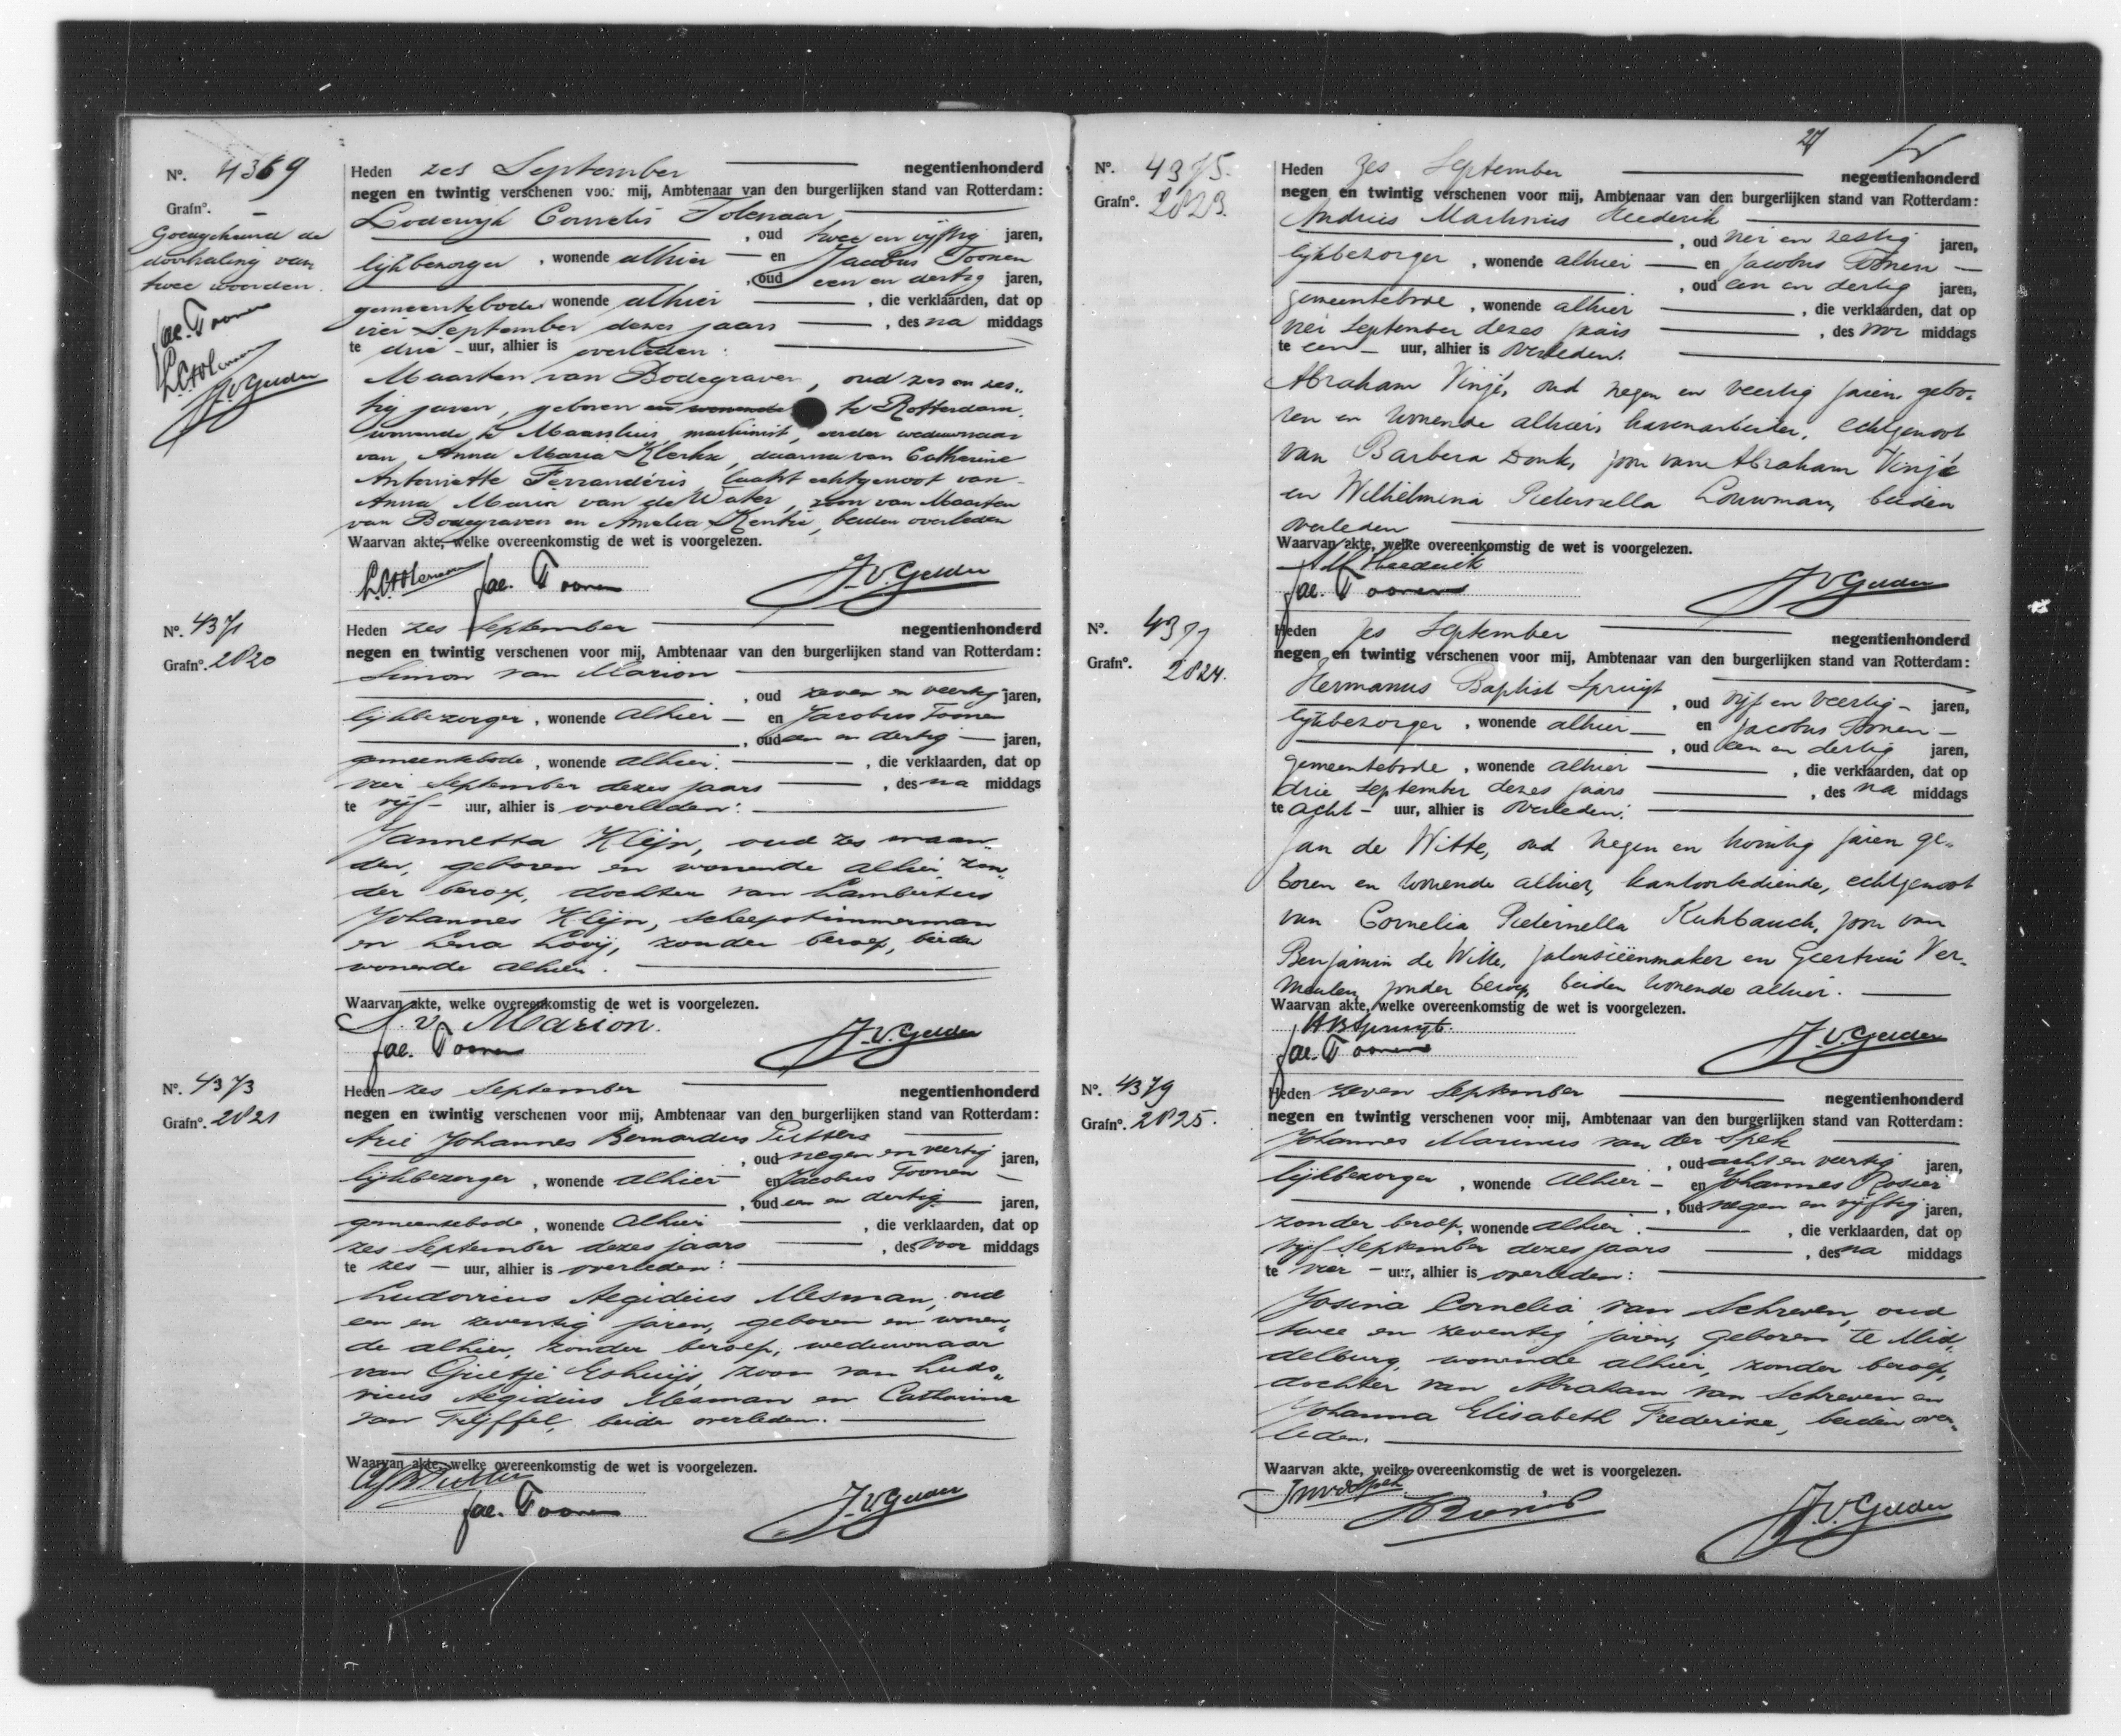 Nº. 4369
Grafnº. —
Goedgekeurd de
doorhaling van
twee woorden.
Jac. Toonen
LCTolenaar
J.v.Gelder
Heden zes September negentienhonderd
negen en twintig verschenen voor mij, Ambtenaar van den burgerlijken stand van Rotterdam:
Lodewijk Cornelis Tolenaar
, oud twee en vijftig jaren,
lijkbezorger , wonende alhier en Jacobus Toonen
, oud een en dertig jaren,
gemeentebode wonende alhier , die verklaarden, dat op
vier September dezes jaars , des na middags
te drie uur, alhier is overleden:
Maarten van Bodegraven, oud zes en zes„
tig jaren, geboren en wonende te Rotterdam,
wonende te Maassluis, machinist, eerder weduwnaar
van Anna Maria Klerkx, daarna van Catherine
Antoinette Ferrandéris laatst echtgenoot van
Anna Maria van de Water, zoon van Maarten
van Bodegraven en Amelia Kentie, beiden overleden
Waarvan akte, welke overeenkomstig de wet is voorgelezen.
LCTolenaar Jac. Toonen J.v.Gelder
Nº. 4371
Grafnº. 2820
Heden zes September negentienhonderd
negen en twintig verschenen voor mij, Ambtenaar van den burgerlijken stand van Rotterdam:
Simon van Marion
, oud zeven en veertig jaren,
lijkbezorger , wonende alhier — en Jacobus Toonen
, oud een en dertig — jaren,
gemeentebode , wonende alhier. , die verklaarden, dat op
vier September dezes jaars , des na middags
te vijf uur, alhier is overleden:
Jannetta Kleijn, oud zes maan„
den, geboren en wonende alhier, zon„
der beroep, dochter van Lambertus
Johannes Kleijn, scheepstimmerman
en Lena Looij, zonder beroep, beiden
wonende alhier.
Waarvan akte, welke overeenkomstig de wet is voorgelezen.
S. v. Marion.
Jac. Toonen J.v.Gelder
Nº. 4373
Grafnº. 2821
Heden zes September negentienhonderd
negen en twintig verschenen voor mij, Ambtenaar van den burgerlijken stand van Rotterdam:
Arie Johannes Bernardus Putters
, oud negen en veertig jaren,
lijkbezorger , wonende alhier en Jacobus Toonen
, oud een en dertig jaren,
gemeentebode , wonende alhier , die verklaarden, dat op
zes September dezes jaars , des voor middags
te zes — uur, alhier is overleden:
Ludovicus Aegidius Mesman, oud
een en zeventig jaren, geboren en wonen„
de alhier, zonder beroep, weduwnaar
van Grietje Eshuijs, zoon van Ludo„
vicus Aegidius Mesman en Catharina
van Teijffel, beiden overleden.
Waarvan akte, welke overeenkomstig de wet is voorgelezen.
AJBPutters
Jac. Toonen J.v.Gelder
27
Nº. 4375.
Grafnº. 2823.
Heden zes September negentienhonderd
negen en twintig verschenen voor mij, Ambtenaar van den burgerlijken stand van Rotterdam:
Andries Martinus Heederik
, oud vier en zestig jaren,
lijkbezorger , wonende alhier — en Jacobus Toonen —
, oud een en dertig jaren,
gemeentebode , wonende alhier , die verklaarden, dat op
vier September dezes jaars , des voor middags
te een — uur, alhier is overleden:
Abraham Vinjé, oud negen en veertig jaren, gebo„
ren en wonende alhier, havenarbeider, echtgenoot
van Barbera Donk, zoon van Abraham Vinjé
en Wilhelmina Pieternella Louwman, beiden
overleden
Waarvan akte, welke overeenkomstig de wet is voorgelezen.
AM Heederik
Jac. Toonen J.v.Gelder
Nº. 4377
Grafnº. 2824.
Heden zes September negentienhonderd
negen en twintig verschenen voor mij, Ambtenaar van den burgerlijken stand van Rotterdam:
Hermanus Baptist Spruijt
, oud vijf en veertig — jaren,
lijkbezorger , wonende alhier — en Jacobus Toonen —
, oud een en dertig jaren,
gemeentebode , wonende alhier , die verklaarden, dat op
drie September dezes jaars , des na middags
te acht — uur, alhier is overleden:
Jan de Witte, oud negen en twintig jaren ge„
boren en wonende alhier, kantoorbediende, echtgenoot
van Cornelia Pieternella Kuhbauch, zoon van
Benjamin de Witte, jalousieënmaker en Geertrui Ver„
meulen, zonder beroep, beiden wonende alhier.
Waarvan akte, welke overeenkomstig de wet is voorgelezen.
HBSpruijt.
Jac. Toonen J.v.Gelder
Nº. 4379
Grafnº. 2825.
Heden zeven September negentienhonderd
negen en twintig verschenen voor mij, Ambtenaar van den burgerlijken stand van Rotterdam:
Johannes Marinus van der Spek
, oud acht en veertig jaren,
lijkbezorger , wonende alhier — en Johannes Rosier
, oud negen en vijftig jaren,
zonder beroep, wonende alhier. , die verklaarden, dat op
vijf September dezes jaars , des na middags
te vier — uur, alhier is overleden:
Josina Cornelia van Schreven, oud
twee en zeventig jaren, geboren te Mid„
delburg, wonende alhier, zonder beroep,
dochter van Abraham van Schreven en
Johanna Elisabeth Frederike, beiden over„
leden.
Waarvan akte, welke overeenkomstig de wet is voorgelezen.
JMvdSpek
JRosier J.v.Gelder